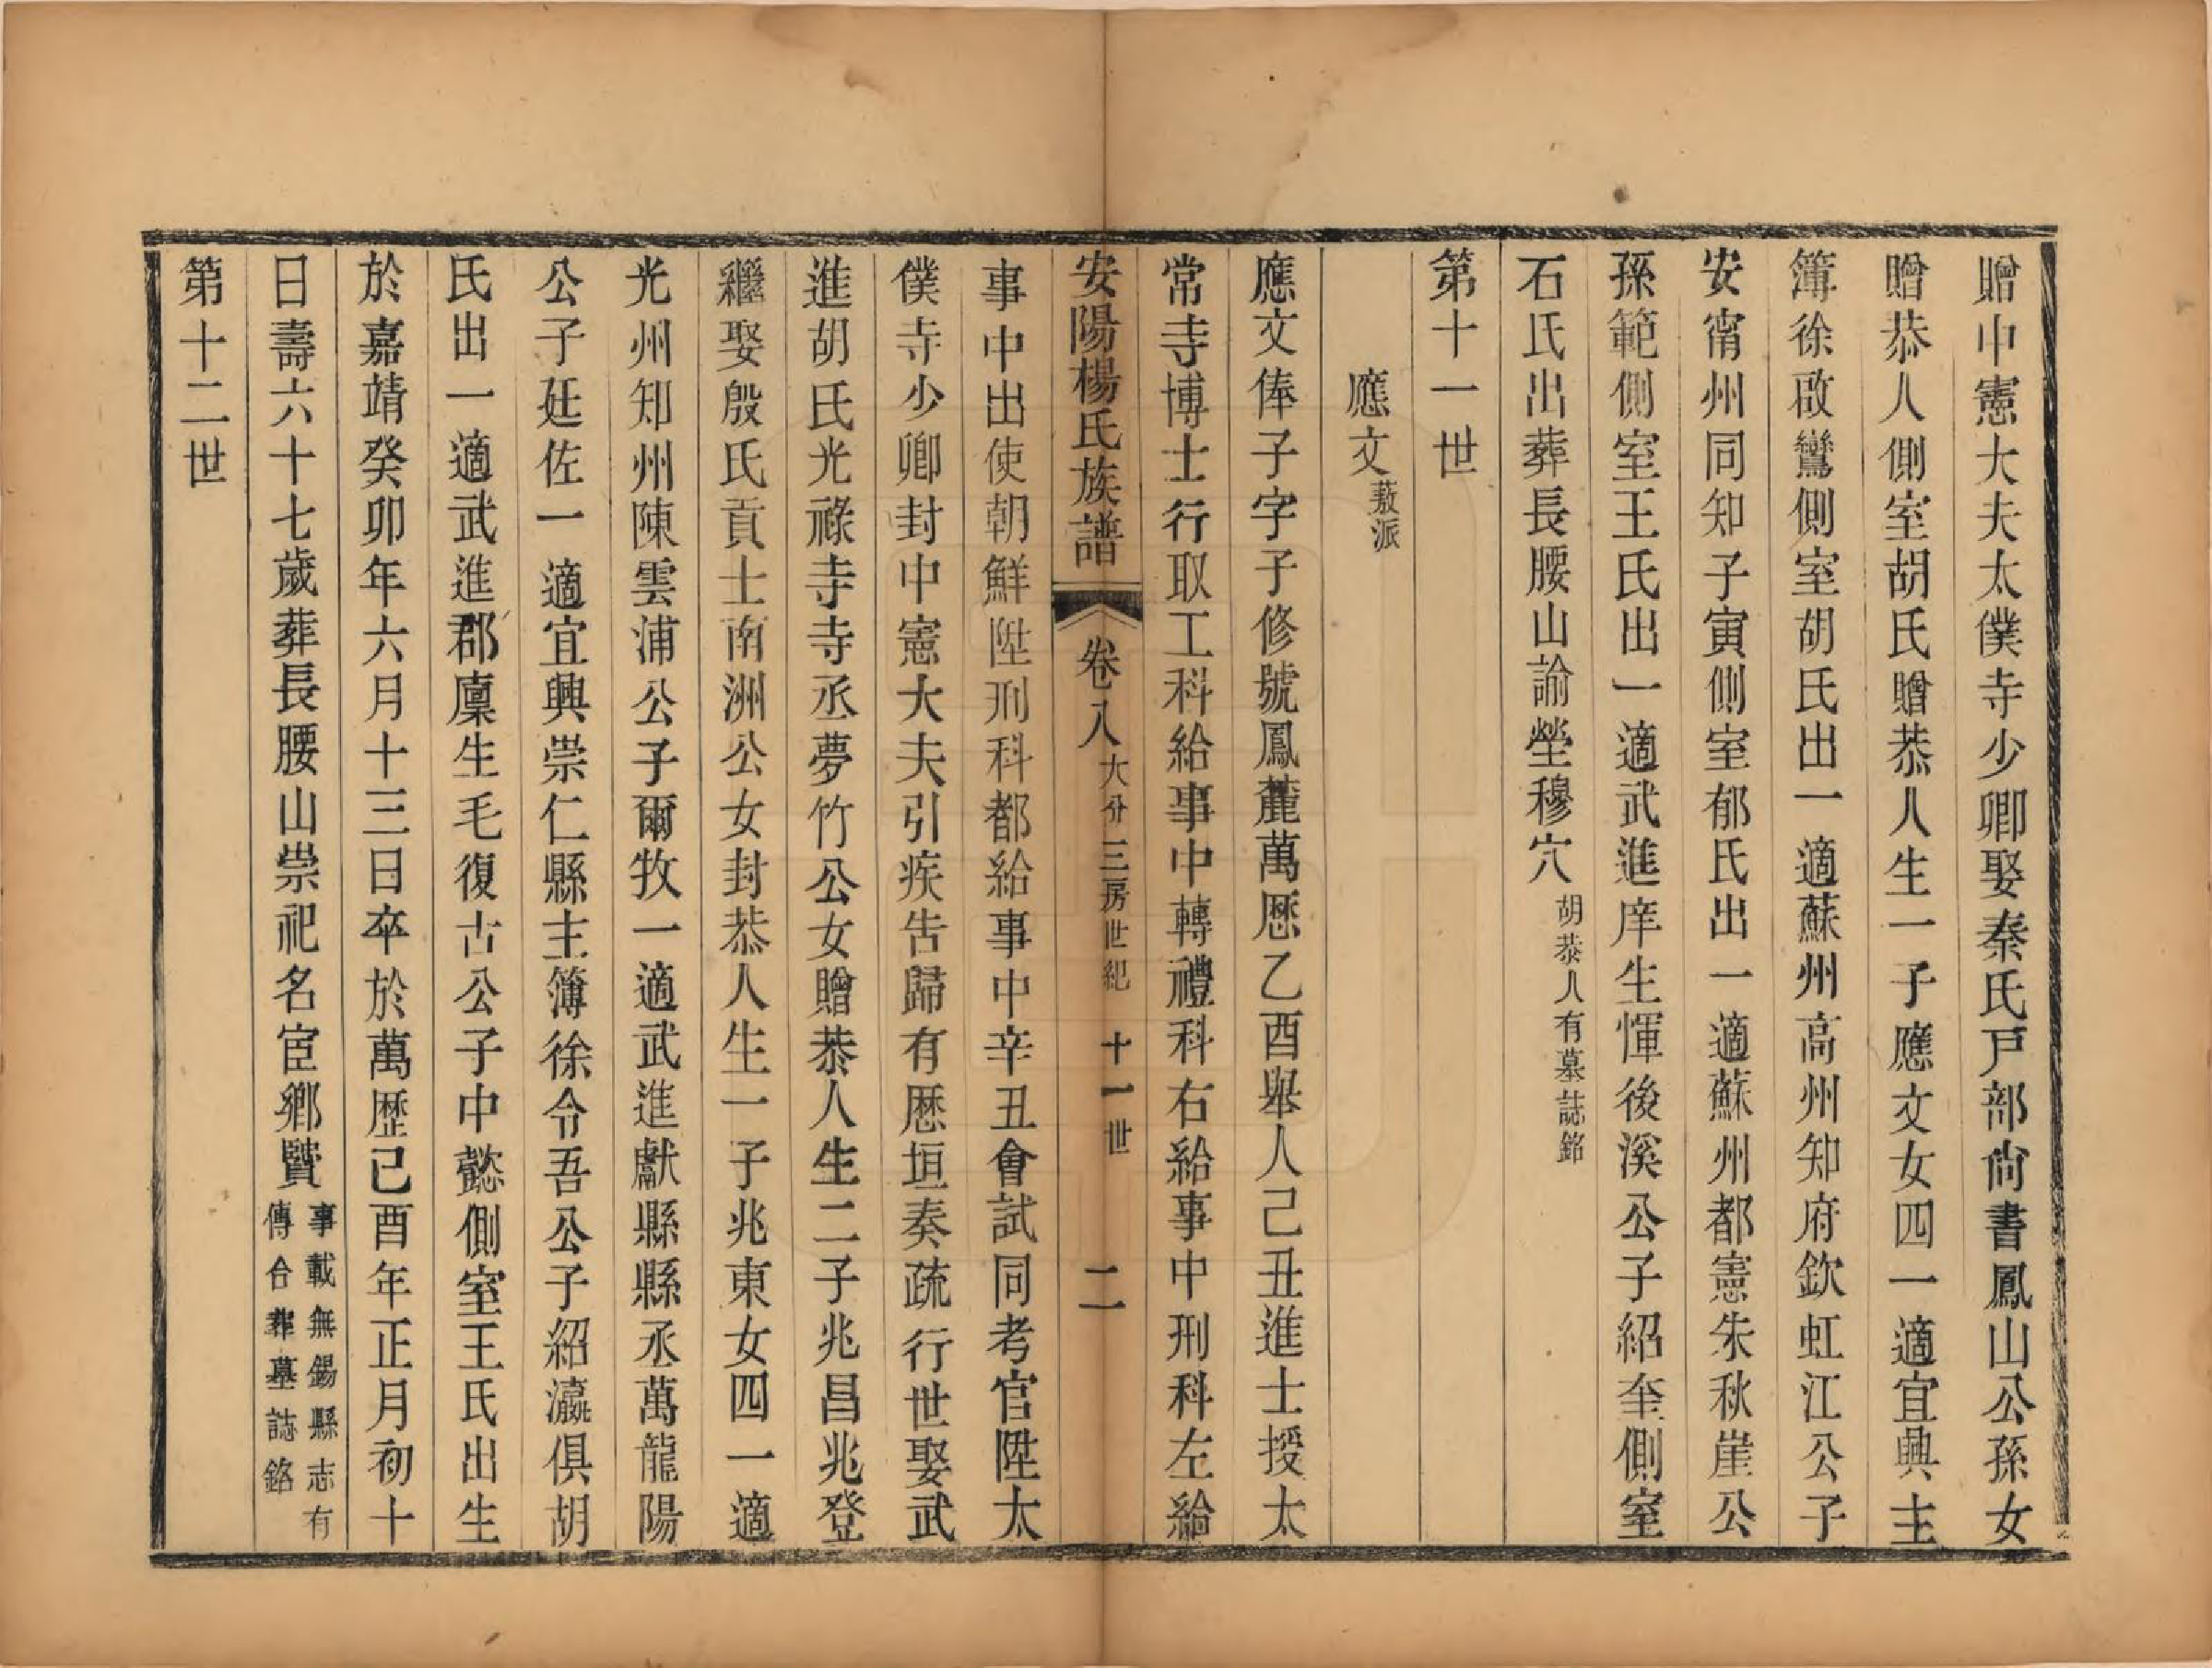 贈中憲大夫太僕寺少卿娶秦氏戸部尙書鳳山公孫女
贈恭人側室胡氏贈恭人生一子應文女四一適宜興主
簿徐啟鸞側室胡氏出一適蘇州高州知府欽虹江公子
安甯州同知子寅側室郁氏出一適蘇州都憲朱秋崖公
孫範側室王氏出一適武進庠生惲後溪公子紹奎側室
石氏出葬長腰山諭塋穆穴胡恭人有墓誌銘
第十一世
應文蓺派
應文俸子字子修號鳳麓萬厯乙酉舉人己丑進士授太
常寺博士行取工科給事中轉禮科右給事中刑科左給
安陽楊氏族譜 卷八大分三房世紀 十一世 二
事中出使朝鮮陞刑科都給事中辛丑會試同考官陞太
僕寺少卿封中憲大夫引疾告歸有厯垣奏疏行世娶武
進胡氏光祿寺寺丞夢竹公女贈恭人生二子兆昌兆登
繼娶殷氏貢士南洲公女封恭人生一子兆東女四一適
光州知州陳雲浦公子爾牧一適武進獻縣縣丞萬龍陽
公子廷佐一適宜興崇仁縣主簿徐令吾公子紹瀛俱胡
氏出一適武進郡廩生毛復古公子中懿側室王氏出生
於嘉靖癸卯年六月十三日卒於萬歷己酉年正月初十
日壽六十七歲葬長腰山崇祀名宦鄉賢事載無錫縣志有
傳合葬墓誌銘
第十二世